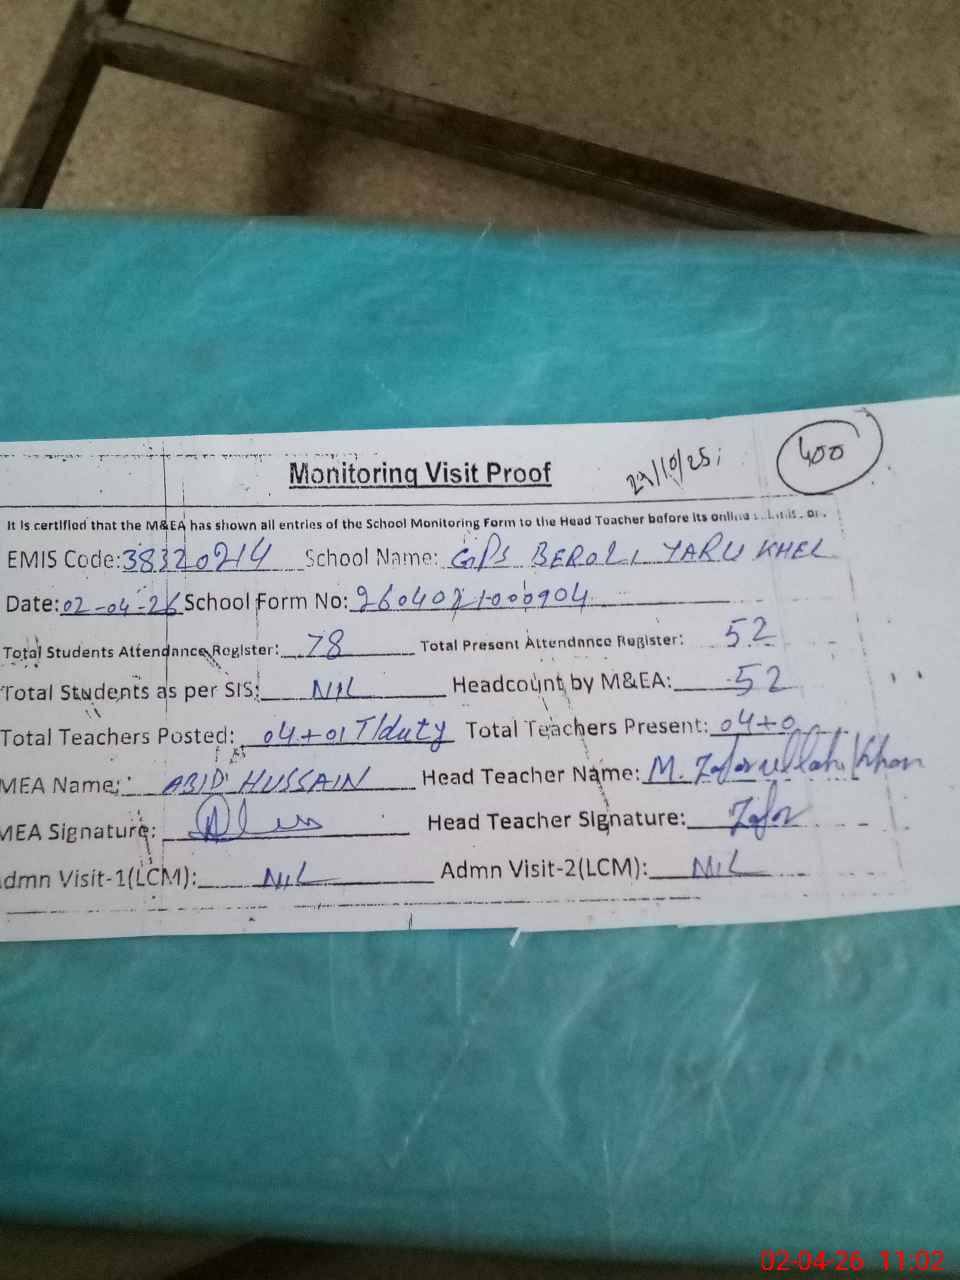 Monitoring Visit Proof 29/10/25; 400
It is certified that the M&EA has shown all entries of the School Monitoring Form to the Head Teacher before its online
EMIS Code: 38320214 School Name: GPS BEROLI YARU KHEL
Date: 02-04-26 School Form No: 2604021000904
Total Students Attendance Register: 78 Total Present Attendance Register: 52
Total Students as per SIS: NIL Headcount by M&EA: 52
Total Teachers Posted: 04+01 T/duty Total Teachers Present: 04+0
MEA Name: ABID HUSSAIN Head Teacher Name: M. Zafarullah Khan
MEA Signature: Head Teacher Signature: Zafar
dmn Visit-1(LCM): NIL Admn Visit-2(LCM): NIL
02-04-26 11:02